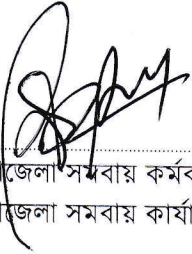 জেলা সমবায় কর্মক
জেলা সমবায় কার্যা